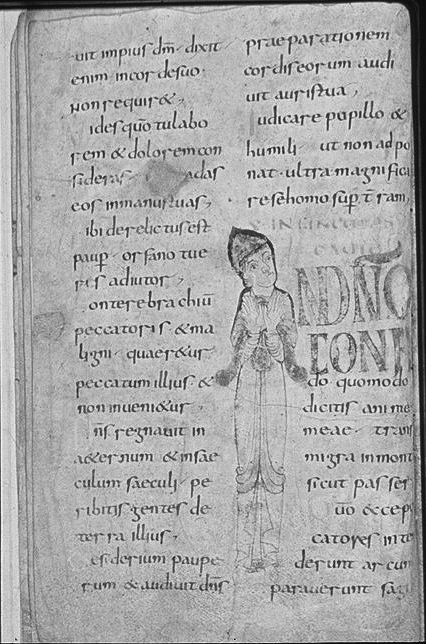 uit impius dm̄ · dixit
enim in cor de suo ·
Non requir& ,
ides qūo tu labo
rem & dolorem con
sideras · adas
eos in manus tuas ,
ibi derelictus est
paup̄ · orfano tu e
ris adiutor ,
ontere brachiū
peccatoris & ma
ligni · quaer&ur
peccatum illius · &
non inueni&ur ,
n̄s regnauit in
a&ernum & in sae
culum saeculi · pe
ribitis gentes de
terra illius ,
esiderium paupe
rum & audiuit dn̄s
praeparationem
cordis eorum audi
uit auris tua ,
udicare pupillo &
humili · ut non adpo
nat · ultra magnifica
re se homo sup̄ t̄ram ,
IN DN̄O
CONFI
do quomodo
dicitis animae
meae · trans
migra in mont
sicut passer
ūo ecce p
catores inte
derunt arcum
parauerunt sagi